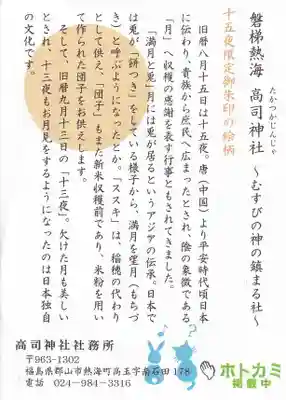 磐梯熱海 高司神社 ～むすびの神の鎮まる社～
たかつかじんじゃ
十五夜限定御朱印の絵柄
旧暦八月十五日は十五夜。唐（中国）より平安時代頃日本
に伝わり、貴族から庶民へ広まったとされ、陰の象徴である
「月」へ収穫の感謝を表す行事ともされてきました。
「満月と兎」月には兎が居るというアジアの伝承。日本で
は兎が「餅つき」をしている様子から、満月を望月（もちづ
き）と呼ぶようになったとか。「ススキ」は、稲穂の代わり
として供え、「団子」もまだ新米収穫前であり、米粉を用い
て作られた団子をお供えします。
そして、旧暦九月十三日の「十三夜」。欠けた月も美しい
とされ、十三夜もお月見をするようになったのは日本独自
の文化です。
高司神社社務所
〒963-1302
福島県郡山市熱海町高玉字南石田178
電話 024-984-3316
ホトカミ
掲載中